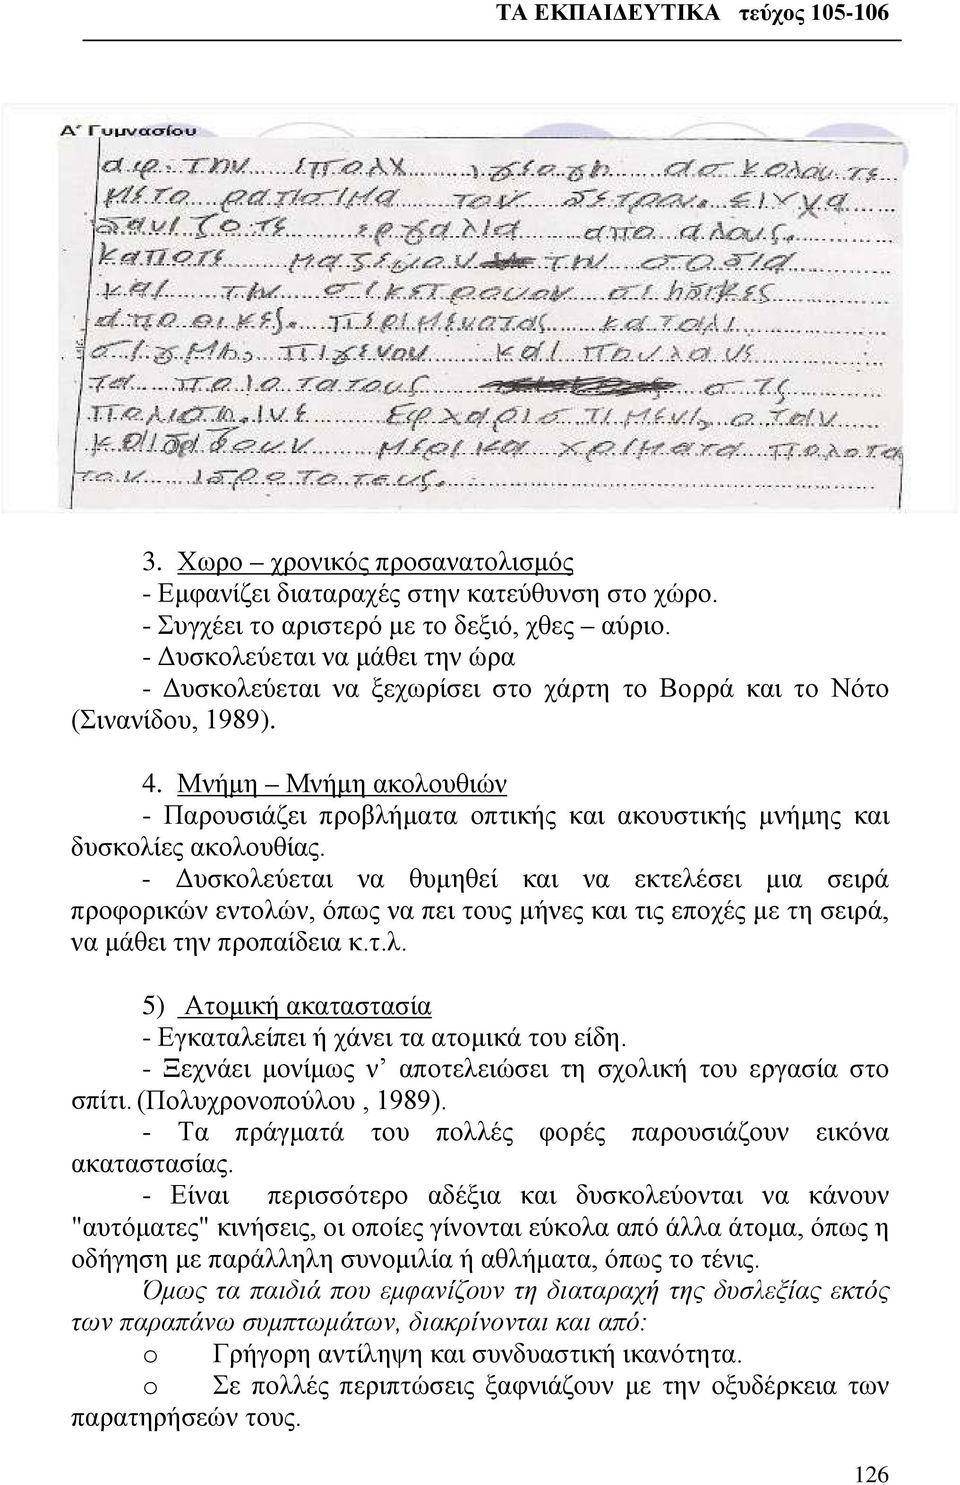 ΤΑ ΕΚΠΑΙΔΕΥΤΙΚΑ τεύχος 105-106
Α΄ Γυμνασίου
αφ. την επολχ ασκολόυτε
με το ραπισιμα τον δετρον. ειχα
δανιζοτε εργαλια απο αλους.
καποτε μαζεμον την σοδια
και την σικετρομον σι ηδικες
αποθικες. περιμενοτας καταλι
σιγμη, πιγενου και πουλαυε
τα πολο τατους στς
πολιση. ινε εφχαρισ τιμενι, οταν
κοιδραουν μερικα χριματα πολοτα
τον ιδροτοτευς.
3. Χωρο – χρονικός προσανατολισμός
- Εμφανίζει διαταραχές στην κατεύθυνση στο χώρο.
- Συγχέει το αριστερό με το δεξιό, χθες – αύριο.
- Δυσκολεύεται να μάθει την ώρα
- Δυσκολεύεται να ξεχωρίσει στο χάρτη το Βορρά και το Νότο
(Σινανίδου, 1989).
4. Μνήμη – Μνήμη ακολουθιών
- Παρουσιάζει προβλήματα οπτικής και ακουστικής μνήμης και
δυσκολίες ακολουθίας.
- Δυσκολεύεται να θυμηθεί και να εκτελέσει μια σειρά
προφορικών εντολών, όπως να πει τους μήνες και τις εποχές με τη σειρά,
να μάθει την προπαίδεια κ.τ.λ.
5) Ατομική ακαταστασία
- Εγκαταλείπει ή χάνει τα ατομικά του είδη.
- Ξεχνάει μονίμως ν’ αποτελειώσει τη σχολική του εργασία στο
σπίτι. (Πολυχρονοπούλου , 1989).
- Τα πράγματά του πολλές φορές παρουσιάζουν εικόνα
ακαταστασίας.
- Είναι περισσότερο αδέξια και δυσκολεύονται να κάνουν
"αυτόματες" κινήσεις, οι οποίες γίνονται εύκολα από άλλα άτομα, όπως η
οδήγηση με παράλληλη συνομιλία ή αθλήματα, όπως το τένις.
Όμως τα παιδιά που εμφανίζουν τη διαταραχή της δυσλεξίας εκτός
των παραπάνω συμπτωμάτων, διακρίνονται και από:
o Γρήγορη αντίληψη και συνδυαστική ικανότητα.
o Σε πολλές περιπτώσεις ξαφνιάζουν με την οξυδέρκεια των
παρατηρήσεών τους.
126